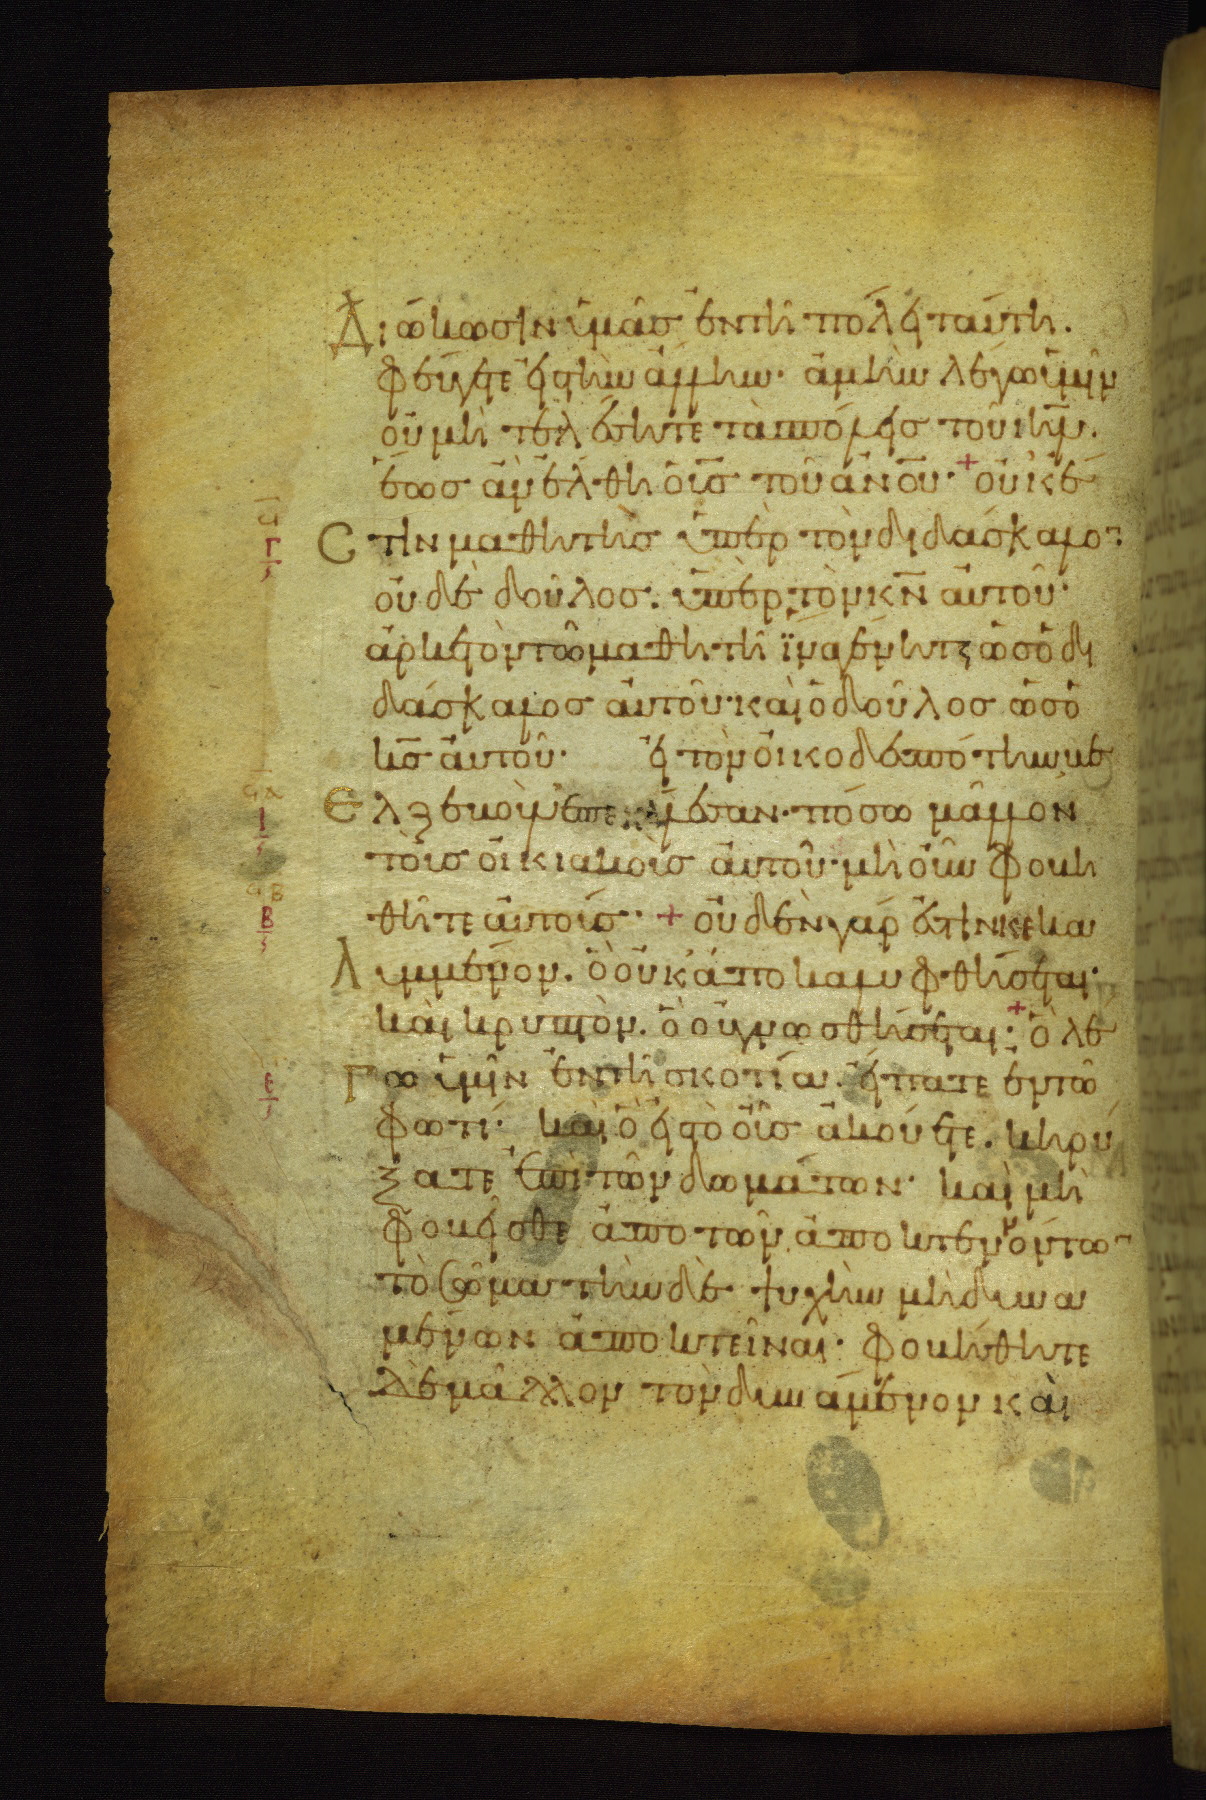 Διώκωσιν ὑμᾶσ ἐν τῆ πόλει ταύτη.
φεύγετε εἰς τὴν ἄλλην· ἀμὴν λέγω ὑμῖν
οὐ μὴ τελέσητε τὰς πόλεις τοῦ ιηλ.
ἕωσ ἂν ἔλθη ὁ υ̅ς̅ τοῦ α̅ν̅ο̅υ̅· + οὐκ ἔ
Στιν μαθητὴσ ὑπὲρ τὸν διδάσκαλον
οὐδὲ δοῦλοσ. ὑπὲρ τὸν κ̅ν̅ αὐτοῦ·
ἀρκετὸν τῶ μαθητῆ ἵνα γένηται ὡσ ὁ δι
δάσκαλοσ αὐτοῦ· καὶ ὁ δοῦλοσ ὡσ ὁ
κ̅ς̅ αὐτοῦ· εἰ τὸν οἰκοδεσπότην βε
Ελζεβοὺλ ἐκάλεσαν· πόσω μᾶλλον
τοὺσ οἰκιακοὺσ αὐτοῦ· μὴ οὖν φοβη
θῆτε αὐτούσ· + οὐδὲν γάρ ἐστιν κεκα
Λυμμένον. ὃ οὐκ ἀποκαλυφθήσεται·
καὶ κρυπτὸν. ὃ οὐ γνωσθήσεται· + ὃ λέ
Γω ὑμῖν ἐν τῆ σκοτία. εἴπατε ἐν τῶ
φωτί· καὶ ὃ εἰς τὸ οὖσ ἀκούετε. κηρύ
ξατε ἐπὶ τῶν δωμάτων· καὶ μὴ
φοβεῖσθε ἀπο τῶν ἀποκτενόντων
τὸ σῶμα· τὴν δὲ ψυχὴν μὴ δυνα
μένων ἀποκτεῖναι· φοβήθητε
δὲ μᾶλλον τὸν δυνάμενον καὶ
Γ
Ι
Β
Ε